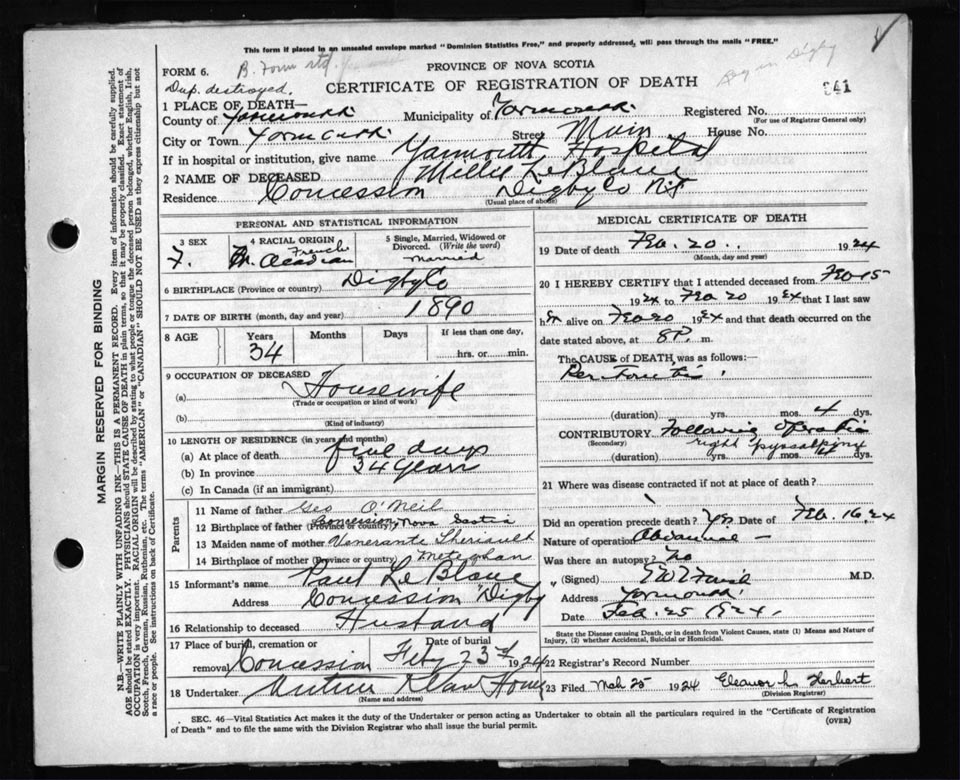 This form if placed in an unsealed envelope marked "Dominion Statistics Free," and properly addressed, will pass through the mails "FREE."
B. Form std.
PROVINCE OF NOVA SCOTIA
FORM 6.
Dup. destroyed.
CERTIFICATE OF REGISTRATION OF DEATH
Digby
341
1 PLACE OF DEATH—
County of Yarmouth Municipality of Yarmouth Registered No.
(For use of Registrar General only)
City or Town Yarmouth Street Main House No.
If in hospital or institution, give name Yarmouth Hospital
2 NAME OF DECEASED Millie LeBlanc
Residence Concession Digby Co N.S
(Usual place of abode)
PERSONAL AND STATISTICAL INFORMATION
3 SEX
F.
4 RACIAL ORIGIN
French
Acadian
5 Single, Married, Widowed or Divorced. (Write the word)
Married
6 BIRTHPLACE (Province or country) Digby Co
7 DATE OF BIRTH (month, day and year) 1890
8 AGE Years Months Days If less than one day,
34 hrs. or min.
9 OCCUPATION OF DECEASED
(a) Housewife
(Trade or occupation or kind of work)
(b)
(Kind of industry)
10 LENGTH OF RESIDENCE (in years and months)
(a) At place of death five days
(b) In province 34 years
(c) In Canada (if an immigrant)
Parents
11 Name of father Geo O'Neil
12 Birthplace of father (Province or country) Concession Nova Scotia
13 Maiden name of mother Venerante Theriault
14 Birthplace of mother (Province or country) Meteghan
15 Informant's name Paul LeBlanc
Address Concession Digby
16 Relationship to deceased Husband
17 Place of burial, cremation or removal Concession Date of burial Feby 23rd 1924
18 Undertaker
(Name and address)
MEDICAL CERTIFICATE OF DEATH
19 Date of death Feb. 20. 1924
(Month, day and year)
20 I HEREBY CERTIFY that I attended deceased from Feb 15
1924 to Feb 20 1924 that I last saw
her alive on Feb 20 1924 and that death occurred on the
date stated above, at 8 P. m.
The CAUSE of DEATH was as follows:—
Peritonitis.
(duration) yrs. mos. 4 dys.
CONTRIBUTORY Following operation
(Secondary) right pyosalpinx
(duration) yrs. mos. 4 dys.
21 Where was disease contracted if not at place of death?
Did an operation precede death? Yes Date of Feb. 16, 24
Nature of operation Abdominal —
Was there an autopsy? No
(Signed) M.D.
Address Yarmouth
Date Feb. 25 1924.
State the Disease causing Death, or in death from Violent Causes, state (1) Means and Nature of Injury, (2) whether Accidental, Suicidal or Homicidal.
22 Registrar's Record Number
23 Filed Mch 25 1924 Eleanor L. Herbert
(Division Registrar)
SEC. 46—Vital Statistics Act makes it the duty of the Undertaker or person acting as Undertaker to obtain all the particulars required in the "Certificate of Registration of Death" and to file the same with the Division Registrar who shall issue the burial permit.
(OVER)
MARGIN RESERVED FOR BINDING
N.B.—WRITE PLAINLY WITH UNFADING INK—THIS IS A PERMANENT RECORD. Every item of information should be carefully supplied.
AGE should be stated EXACTLY. PHYSICIANS should STATE CAUSE OF DEATH in plain terms, so that it may be properly classified. Exact statement of
OCCUPATION is very important. RACIAL ORIGIN will be described by stating to what people or tongue the deceased person belonged, whether English, Irish,
Scotch, French, German, Russian, Ruthenian, etc. The terms "AMERICAN" or "CANADIAN" SHOULD NOT BE USED as they express citizenship but not
a race or people. See instructions on back of Certificate.